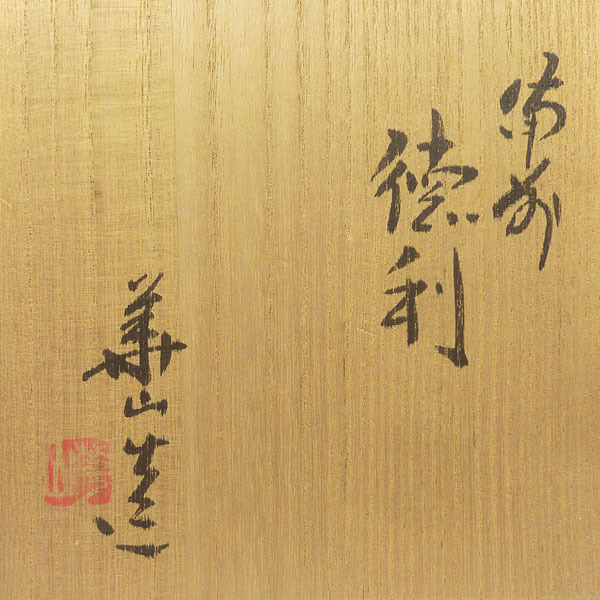 備前
徳利
華山造